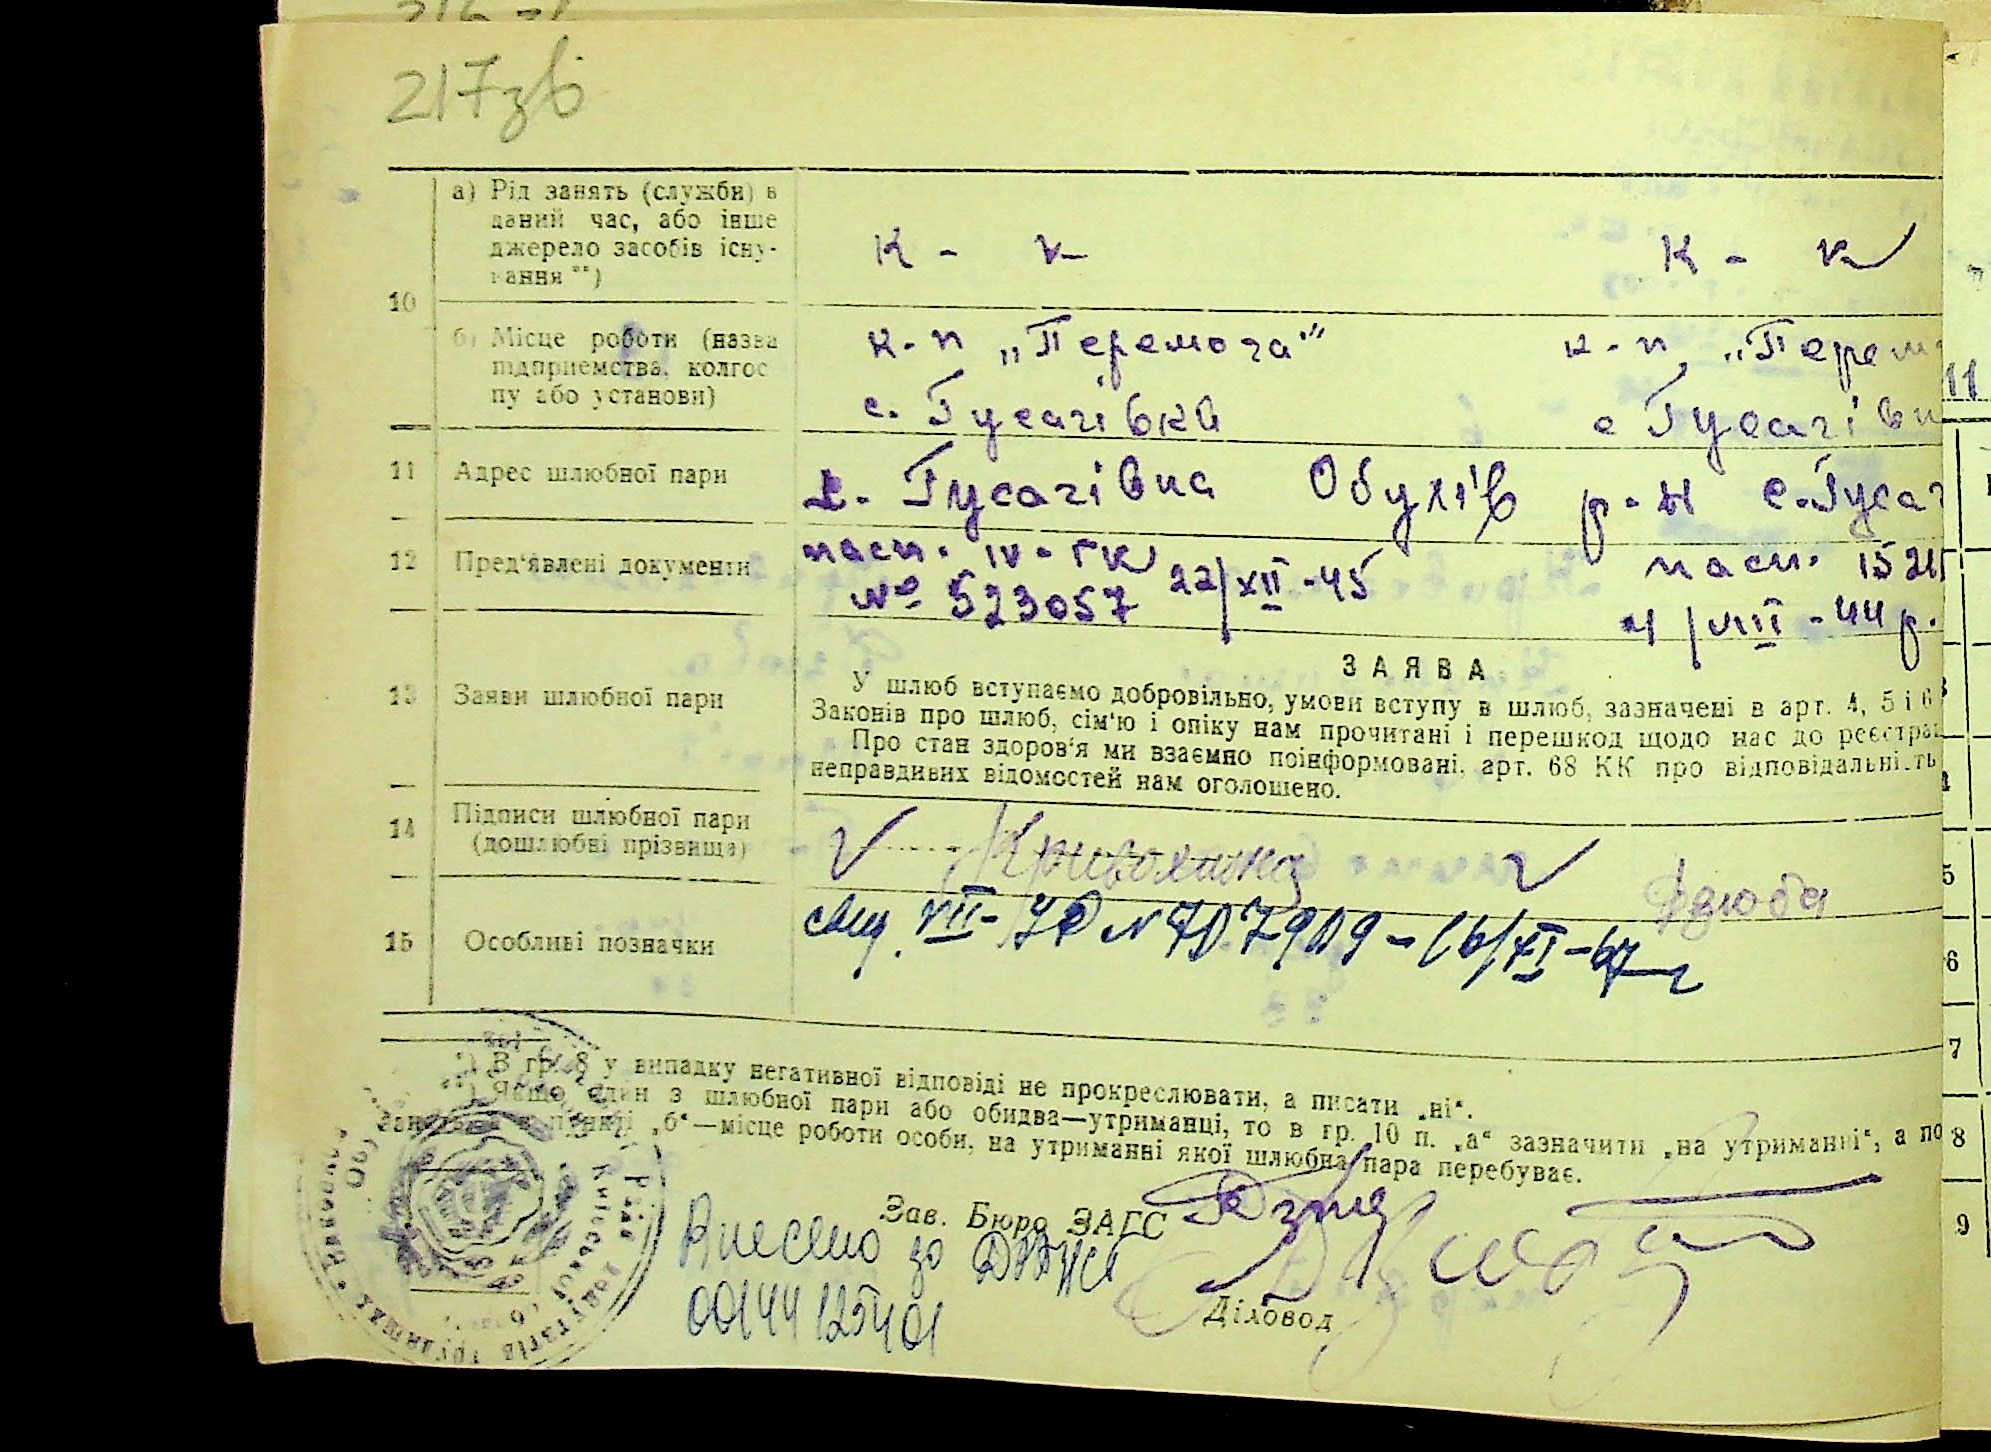 217зв
10
а) Рід занять (служби) в
даний час, або інше
джерело засобів існу-
вання **)
к - к
к - к
б) Місце роботи (назва
підприємства, колгос
пу або установи)
к-п „Перемога"
к-п „Перем
с. Гусачівка
с Гусачівк
11
11 Адрес шлюбної пари
с. Гусачівка Обухів р-н с. Гусач
12 Пред'явлені документи
пасп. IV-ГК
№ 523057 22/XII-45
пасп. 1521
4/VIII-44 р.
13 Заяви шлюбної пари
ЗАЯВА
У шлюб вступаємо добровільно, умови вступу в шлюб, зазначені в арт. 4, 5 і 6
Законів про шлюб, сім'ю і опіку нам прочитані і перешкод щодо нас до реєстрац
Про стан здоров'я ми взаємно поінформовані, арт. 68 КК про відповідальність
неправдивих відомостей нам оголошено.
14 Підписи шлюбної пари
(дошлюбні прізвища)
Дзюба
15 Особливі позначки
*) В гр. 8 у випадку негативної відповіді не прокреслювати, а писати „ні“.
**) Якщо один з шлюбної пари або обидва—утриманці, то в гр. 10 п. „а“ зазначити „на утриманні“, а по
в пункті „б“—місце роботи особи, на утриманні якої шлюбна пара перебуває.
Зав. Бюро ЗАГС
Внесено до
00144125401
Діловод
5
6
7
8
9